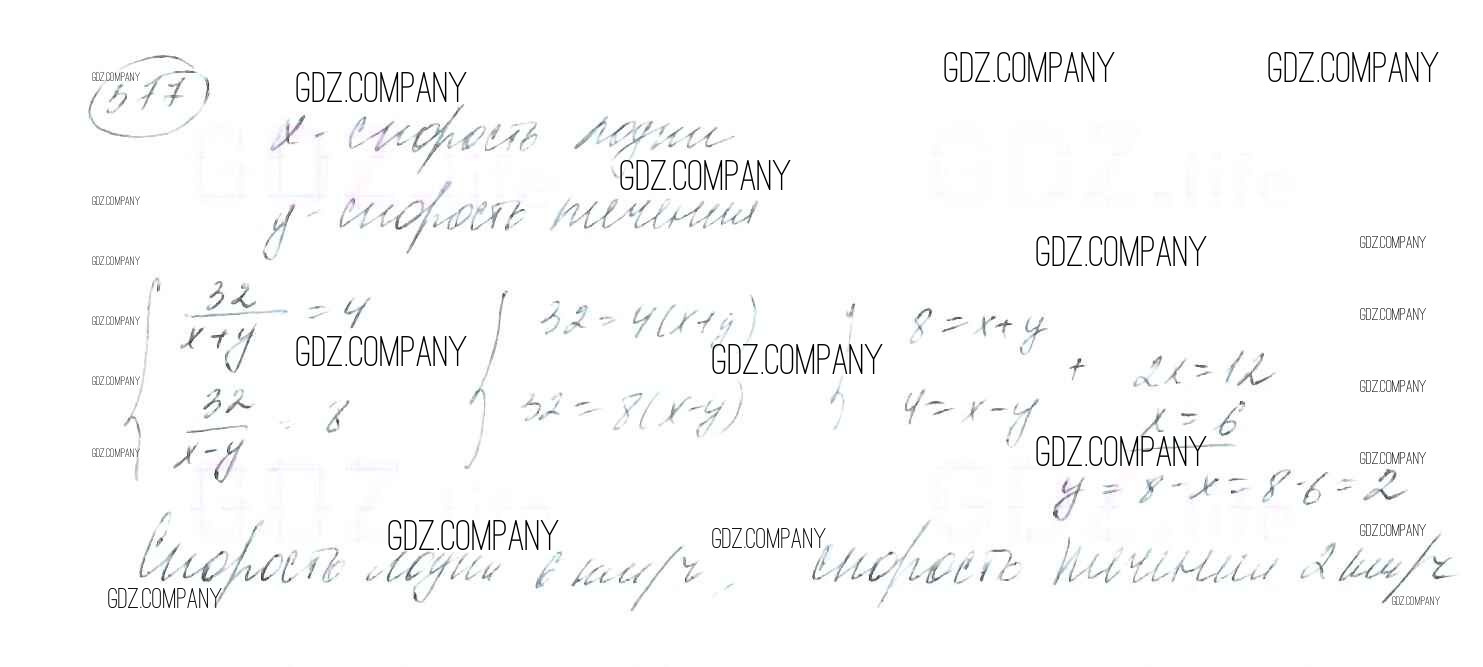 GDZ.COMPANY GDZ.COMPANY
GDZ.COMPANY GDZ.COMPANY
577
x - скорость лодки
GDZ.COMPANY
GDZ.COMPANY
y - скорость течения
GDZ.COMPANY GDZ.COMPANY
GDZ.COMPANY
32/(x+y) = 4 32 = 4(x+y) 8 = x+y
GDZ.COMPANY GDZ.COMPANY
GDZ.COMPANY GDZ.COMPANY
+ 2x = 12
GDZ.COMPANY GDZ.COMPANY
32/(x-y) = 8 32 = 8(x-y) 4 = x-y x = 6
GDZ.COMPANY GDZ.COMPANY GDZ.COMPANY
y = 8-x = 8-6 = 2
GDZ.COMPANY GDZ.COMPANY GDZ.COMPANY
Скорость лодки 6 км/ч, скорость течения 2 км/ч
GDZ.COMPANY GDZ.COMPANY